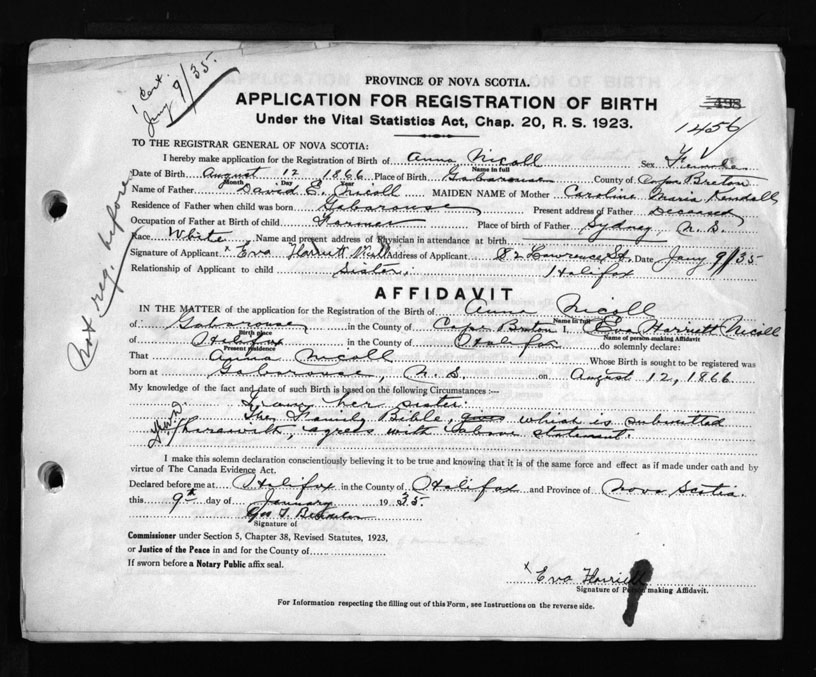 1 Cert.
Jany 9/35.
PROVINCE OF NOVA SCOTIA.
APPLICATION FOR REGISTRATION OF BIRTH
498
Under the Vital Statistics Act, Chap. 20, R. S. 1923.
1456
TO THE REGISTRAR GENERAL OF NOVA SCOTIA:
I hereby make application for the Registration of Birth of Anna Nicoll Sex Female
Name in full
Date of Birth August 12 1866 Place of Birth Gabarouse County of Cape Breton
Month Day Year
Name of Father David E. Nicoll MAIDEN NAME of Mother Caroline Maria Kendall
Residence of Father when child was born Gabarouse Present address of Father Deceased
Occupation of Father at Birth of child Farmer Place of birth of Father Sydney, N.S.
Race White Name and present address of Physician in attendance at birth
Signature of Applicant x Eva Harriett Nicoll Address of Applicant 82 Lawrence St. Date Jany 9/35
Relationship of Applicant to child Sister. Halifax
Not reg. before
AFFIDAVIT
IN THE MATTER of the application for the Registration of the Birth of Anna Nicoll
Name in full
of Gabarouse in the County of Cape Breton I, Eva Harriett Nicoll
Birth place Name of person making Affidavit
of Halifax in the County of Halifax do solemnly declare:
Present residence
That Anna Nicoll Whose Birth is sought to be registered was
born at Gabarouse, N.S. on August 12, 1866.
My knowledge of the fact and date of such Birth is based on the following Circumstances :—
I am her sister.
The Family Bible, which is submitted
herewith, agrees with above statement.
I make this solemn declaration conscientiously believing it to be true and knowing that it is of the same force and effect as if made under oath and by
virtue of The Canada Evidence Act.
Declared before me at Halifax in the County of Halifax and Province of Nova Scotia.
this 9th day of January 1935.
Signature of
Commissioner under Section 5, Chapter 38, Revised Statutes, 1923,
or Justice of the Peace in and for the County of
If sworn before a Notary Public affix seal.
x Eva Harriett
Signature of Person making Affidavit.
For Information respecting the filling out of this Form, see Instructions on the reverse side.